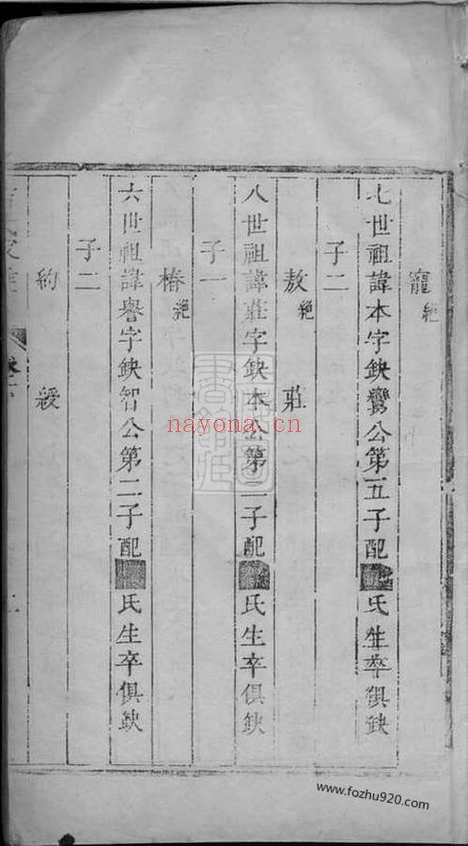 寵 絶
七世祖諱本字缺賫公第五子配氏生卒俱缺
子二
敖 絶 莊
八世祖諱莊字缺本公第二子配氏生卒俱缺
子一
椿 絶
六世祖諱譽字缺智公第二子配氏生卒俱缺
子二
約 綬
nayona.cn
www.fozhu920.com